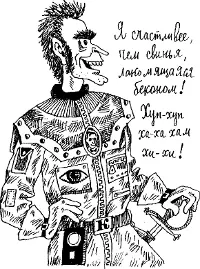 Я счастливее,
чем свинья,
лакомящаяся
беконом!
Хуп-хуп
ха-ха хам
хи-хи!
К